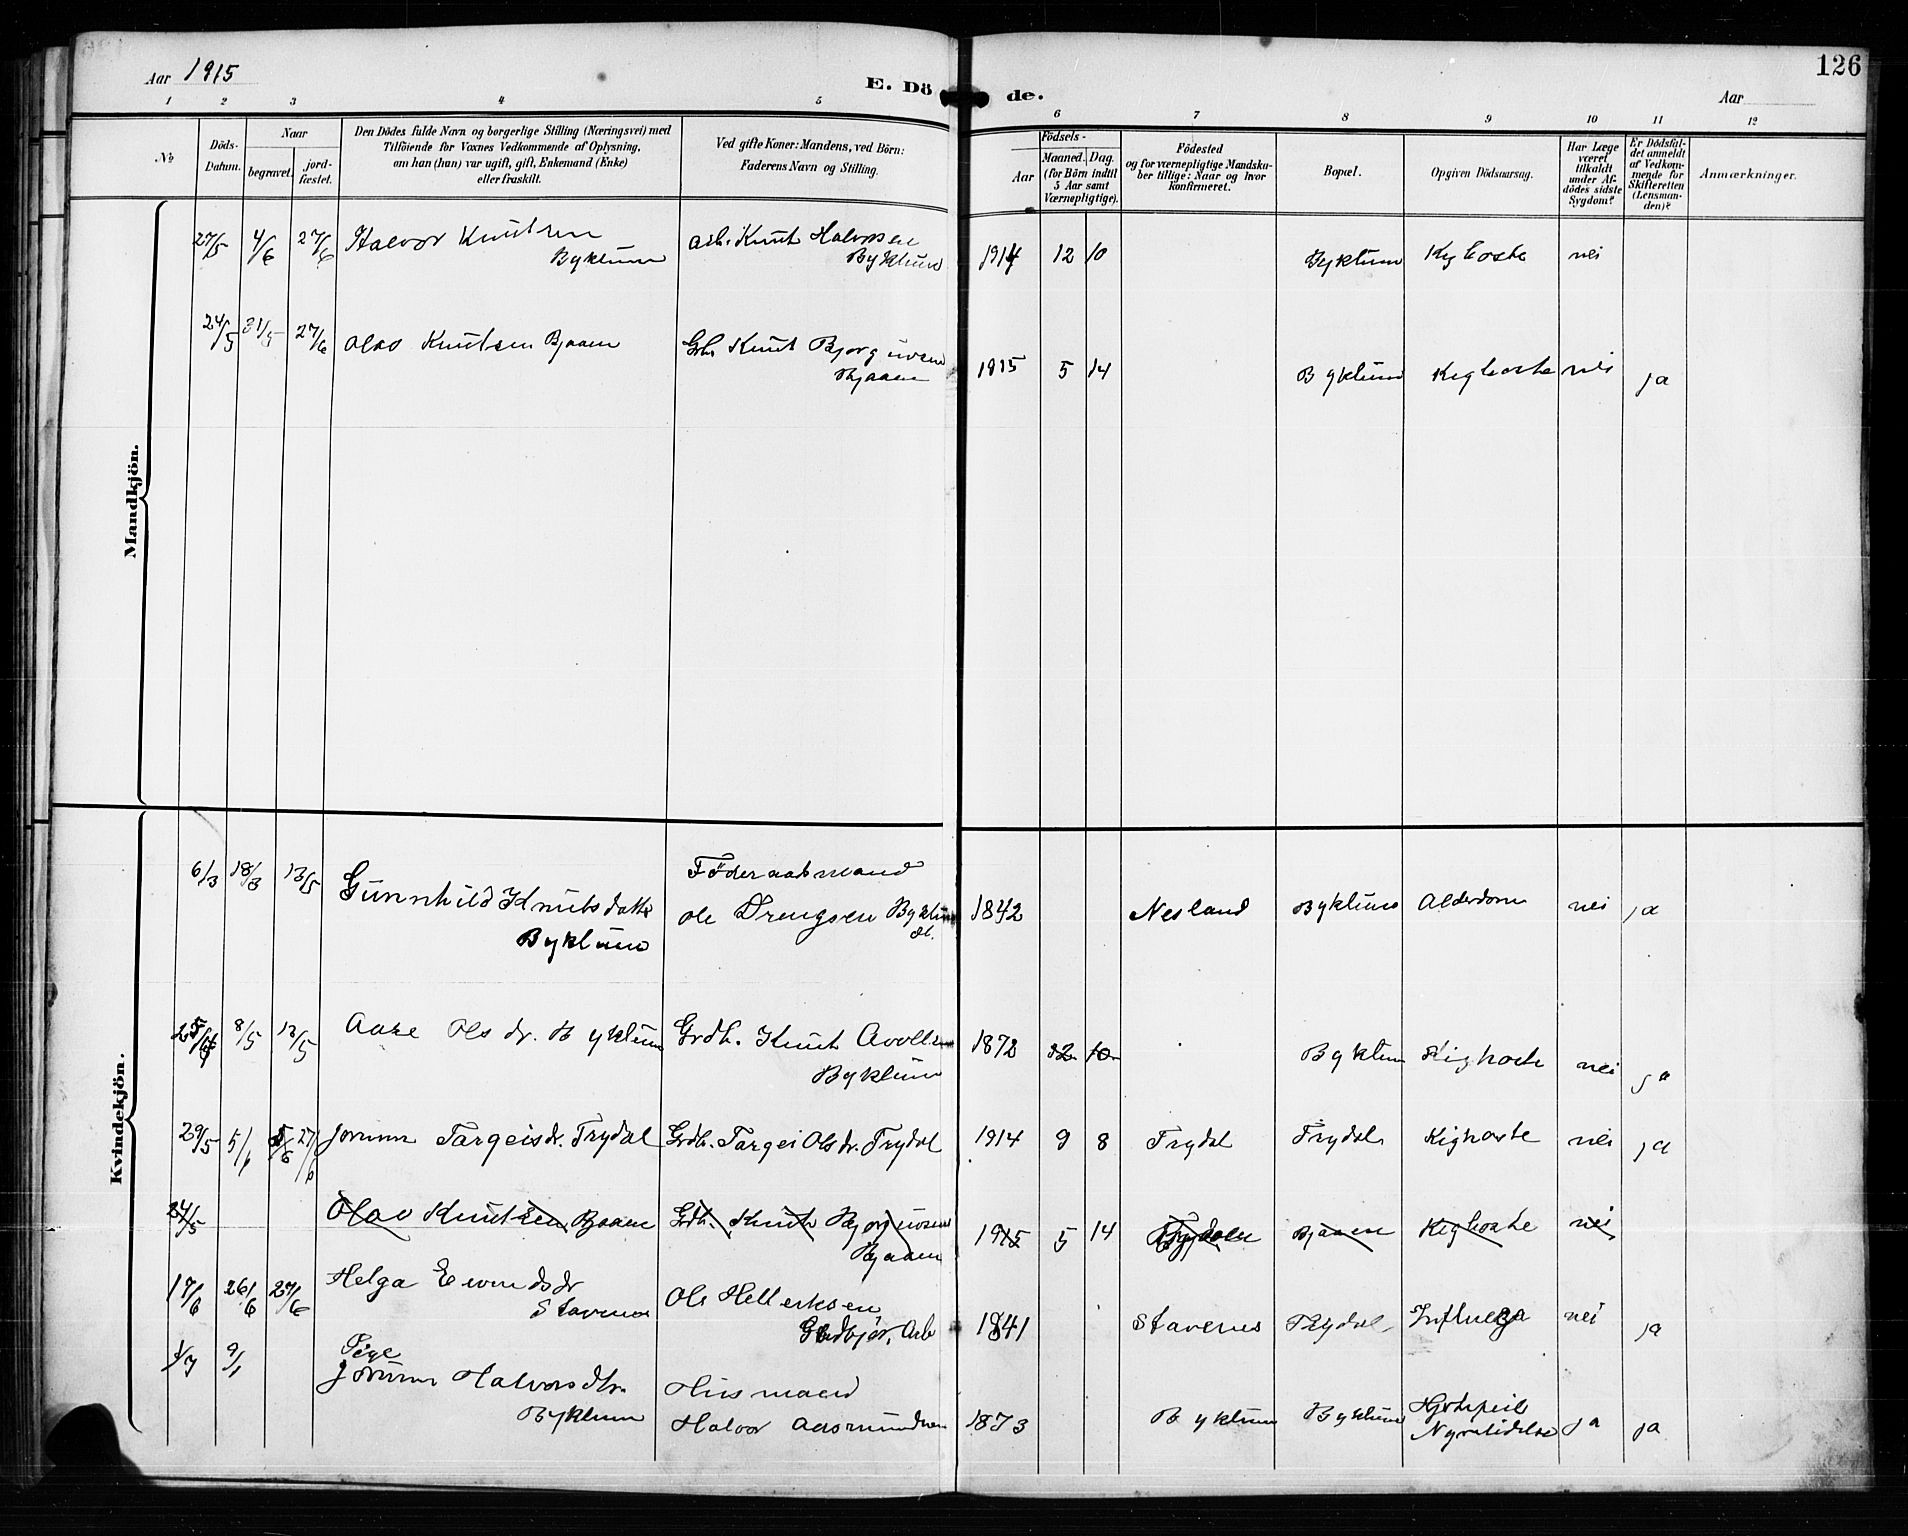 126
Aar 1915
E. Dö de.
Aar
1 2 3 4 5 6 7 8 9 10 11 12
No
Döds-Datum.
Naar
begravet.
jord-fæstet.
Den Dödes fulde Navn og borgerlige Stilling (Næringsvei) med
Tilföiende for Voxnes Vedkommende af Oplysning,
om han (han) var ugift, gift, Enkemand (Enke)
eller fraskilt.
Ved gifte Koner: Mandens, ved Börn:
Faderens Navn og Stilling.
Födsels-
Aar
Maaned. Dag.
(for Börn indtil
5 Aar samt
Værnepligtige).
Födested
og for værnepligtige Mandska-
ber tillige: Naar og hvor
konfirmeret.
Bopæl.
Opgiven Dödsaarsag.
Har Læge
været
tilkaldt
under Af-
dödes sidste
Sygdom?
Er Dödsfal-
det anmeldt
af Vedkom-
mende for
Skifteretten
(Lensman-
den)?
Anmærkninger.
Mandkjön.
27/5 4/6 27/6 Halvor Knutsen arb. Knut Halvorsen
Byklum Byklum 1914 12 10 Byklum Kighoste nei
24/5 31/5 27/6 Olav Knutsen Bjaaen Grb. Knut Bjorguvsen
Bjaaen 1915 5 14 Byklum Kighoste nei ja
Kvindekjön.
6/3 18/3 13/5 Gunnhild Knutsdatter Föderaadsmand
Byklum Ole Drengsen Byklum 1842 Nesland Byklum Alderdom nei ja
8/5 13/5 Aase Olsdr. Byklum Grdb. Knut
Byklum 1872 12 10 Byklum Kighoste nei ja
29/5 5/6 27/6 Jorunn Targeisdr. Trydal Grdb. Targei Olsdr. Trydal 1914 9 8 Trydal Trydal Kighoste nei ja
24/5 Olav Knutsen Bjaaen Grdb. Knut Bjorguvsen
Bjaaen 1915 5 14 Bjaaen Kighoste nei
17/6 26/6 27/6 Helga Eivindsdr
Stavenes Ole Helleiksen
Arb 1841 Stavenes Trydal Influenza nei ja
1/7 9/1 Pige
Jorunn Halvorsdtr. Husmand
Byklum Halvor Aasmundsen 1873 Byklum Byklum Hjertefeil
Nyrelidelse ja ja